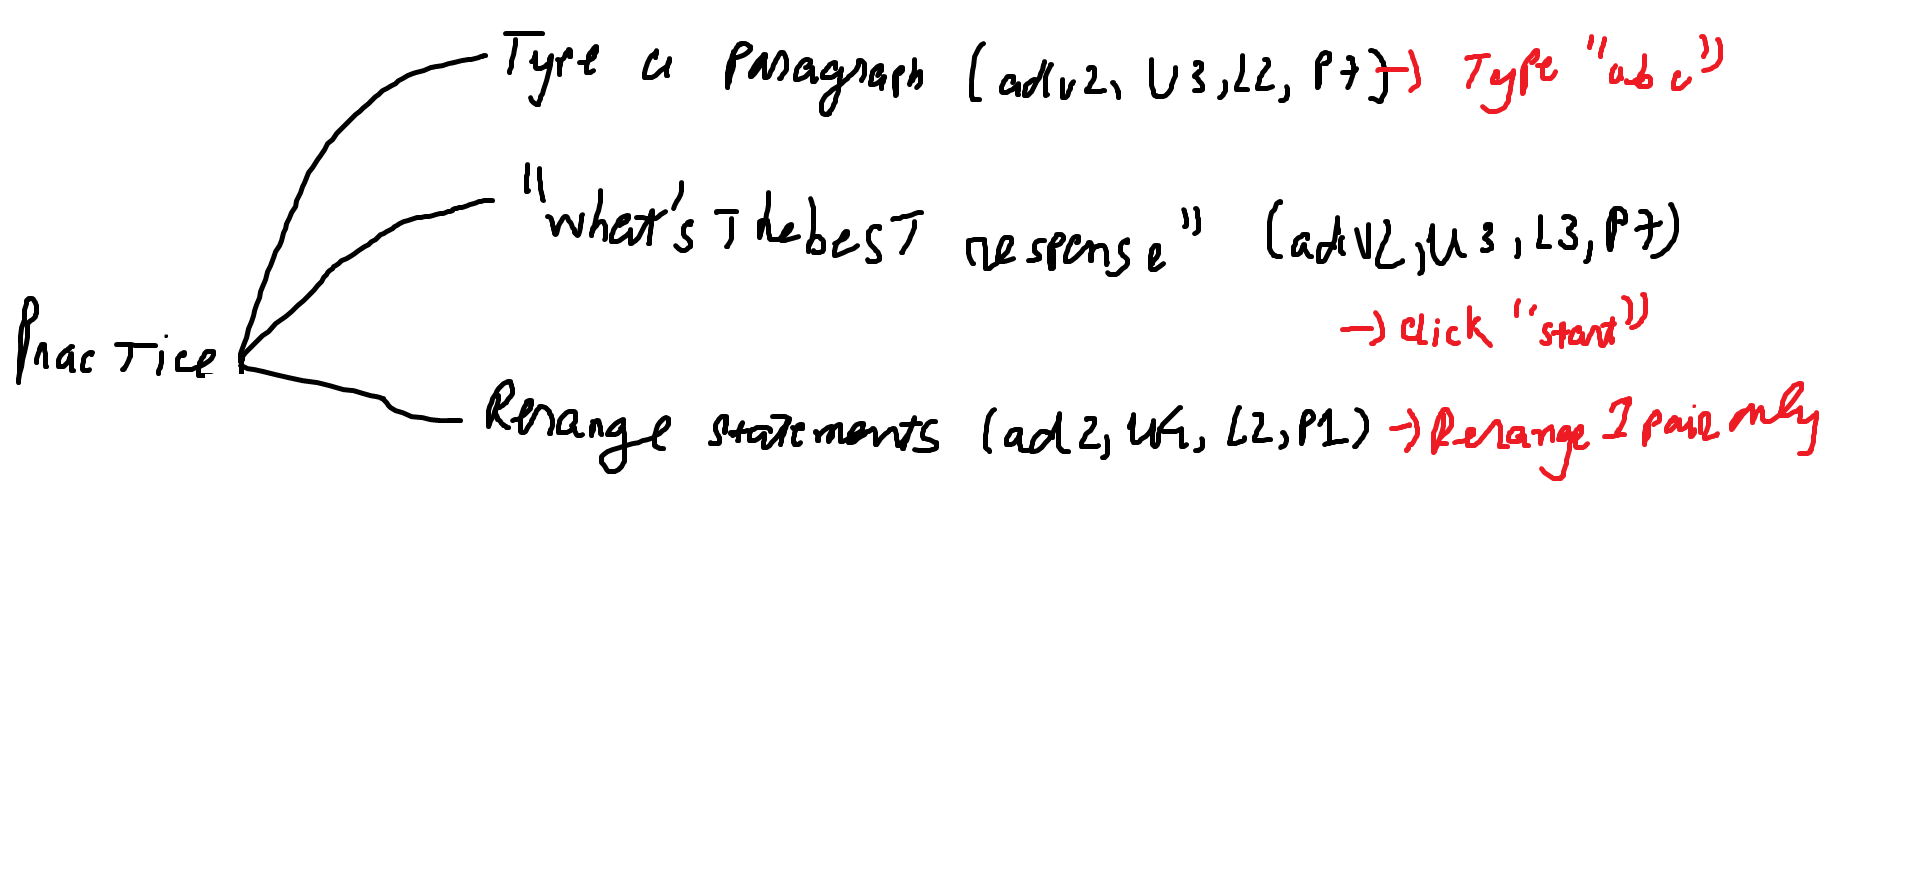 Type a Paragraph (adv2, U3, L2, P7) → Type "abc"
"what's The besT response" (adv2, U3, L3, P7)
→ click "start"
PracTice
Rerange statements (ad2, U4, L2, P1) → Rerange 1 pair only